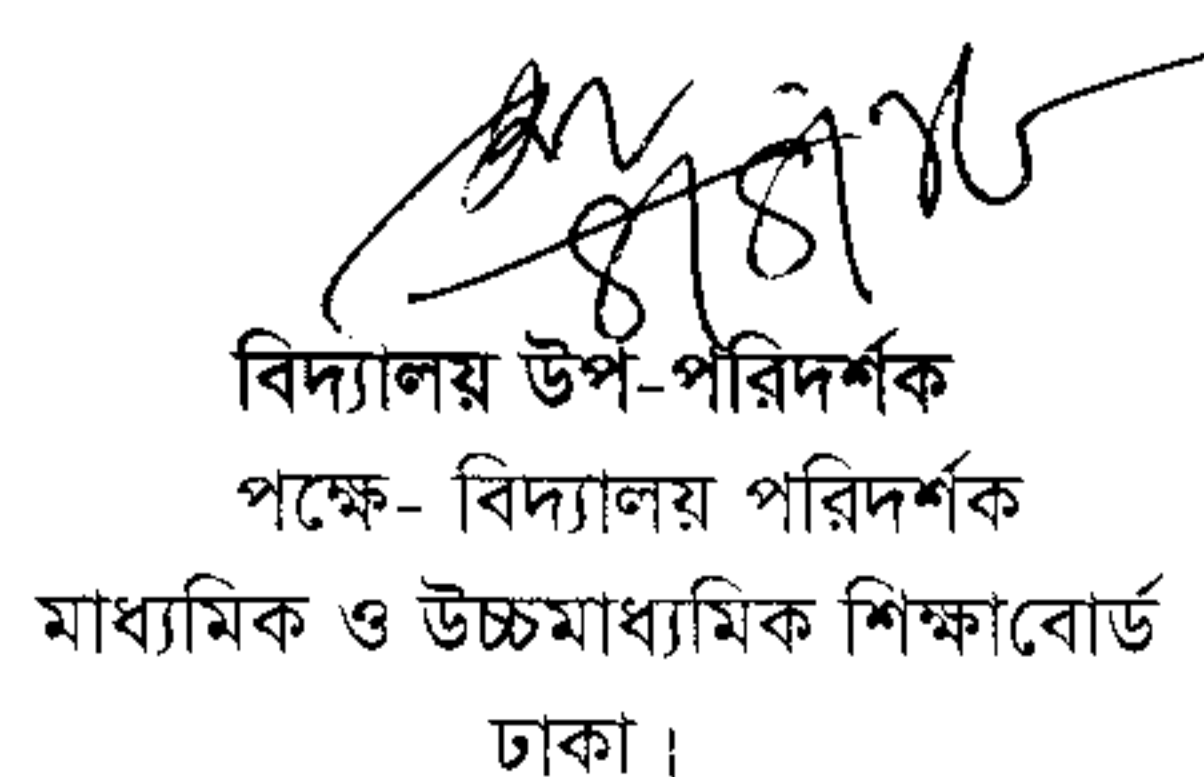 বিদ্যালয় উপ-পরিদর্শক
পক্ষে- বিদ্যালয় পরিদর্শক
মাধ্যমিক ও উচ্চমাধ্যমিক শিক্ষাবোর্ড
ঢাকা ।